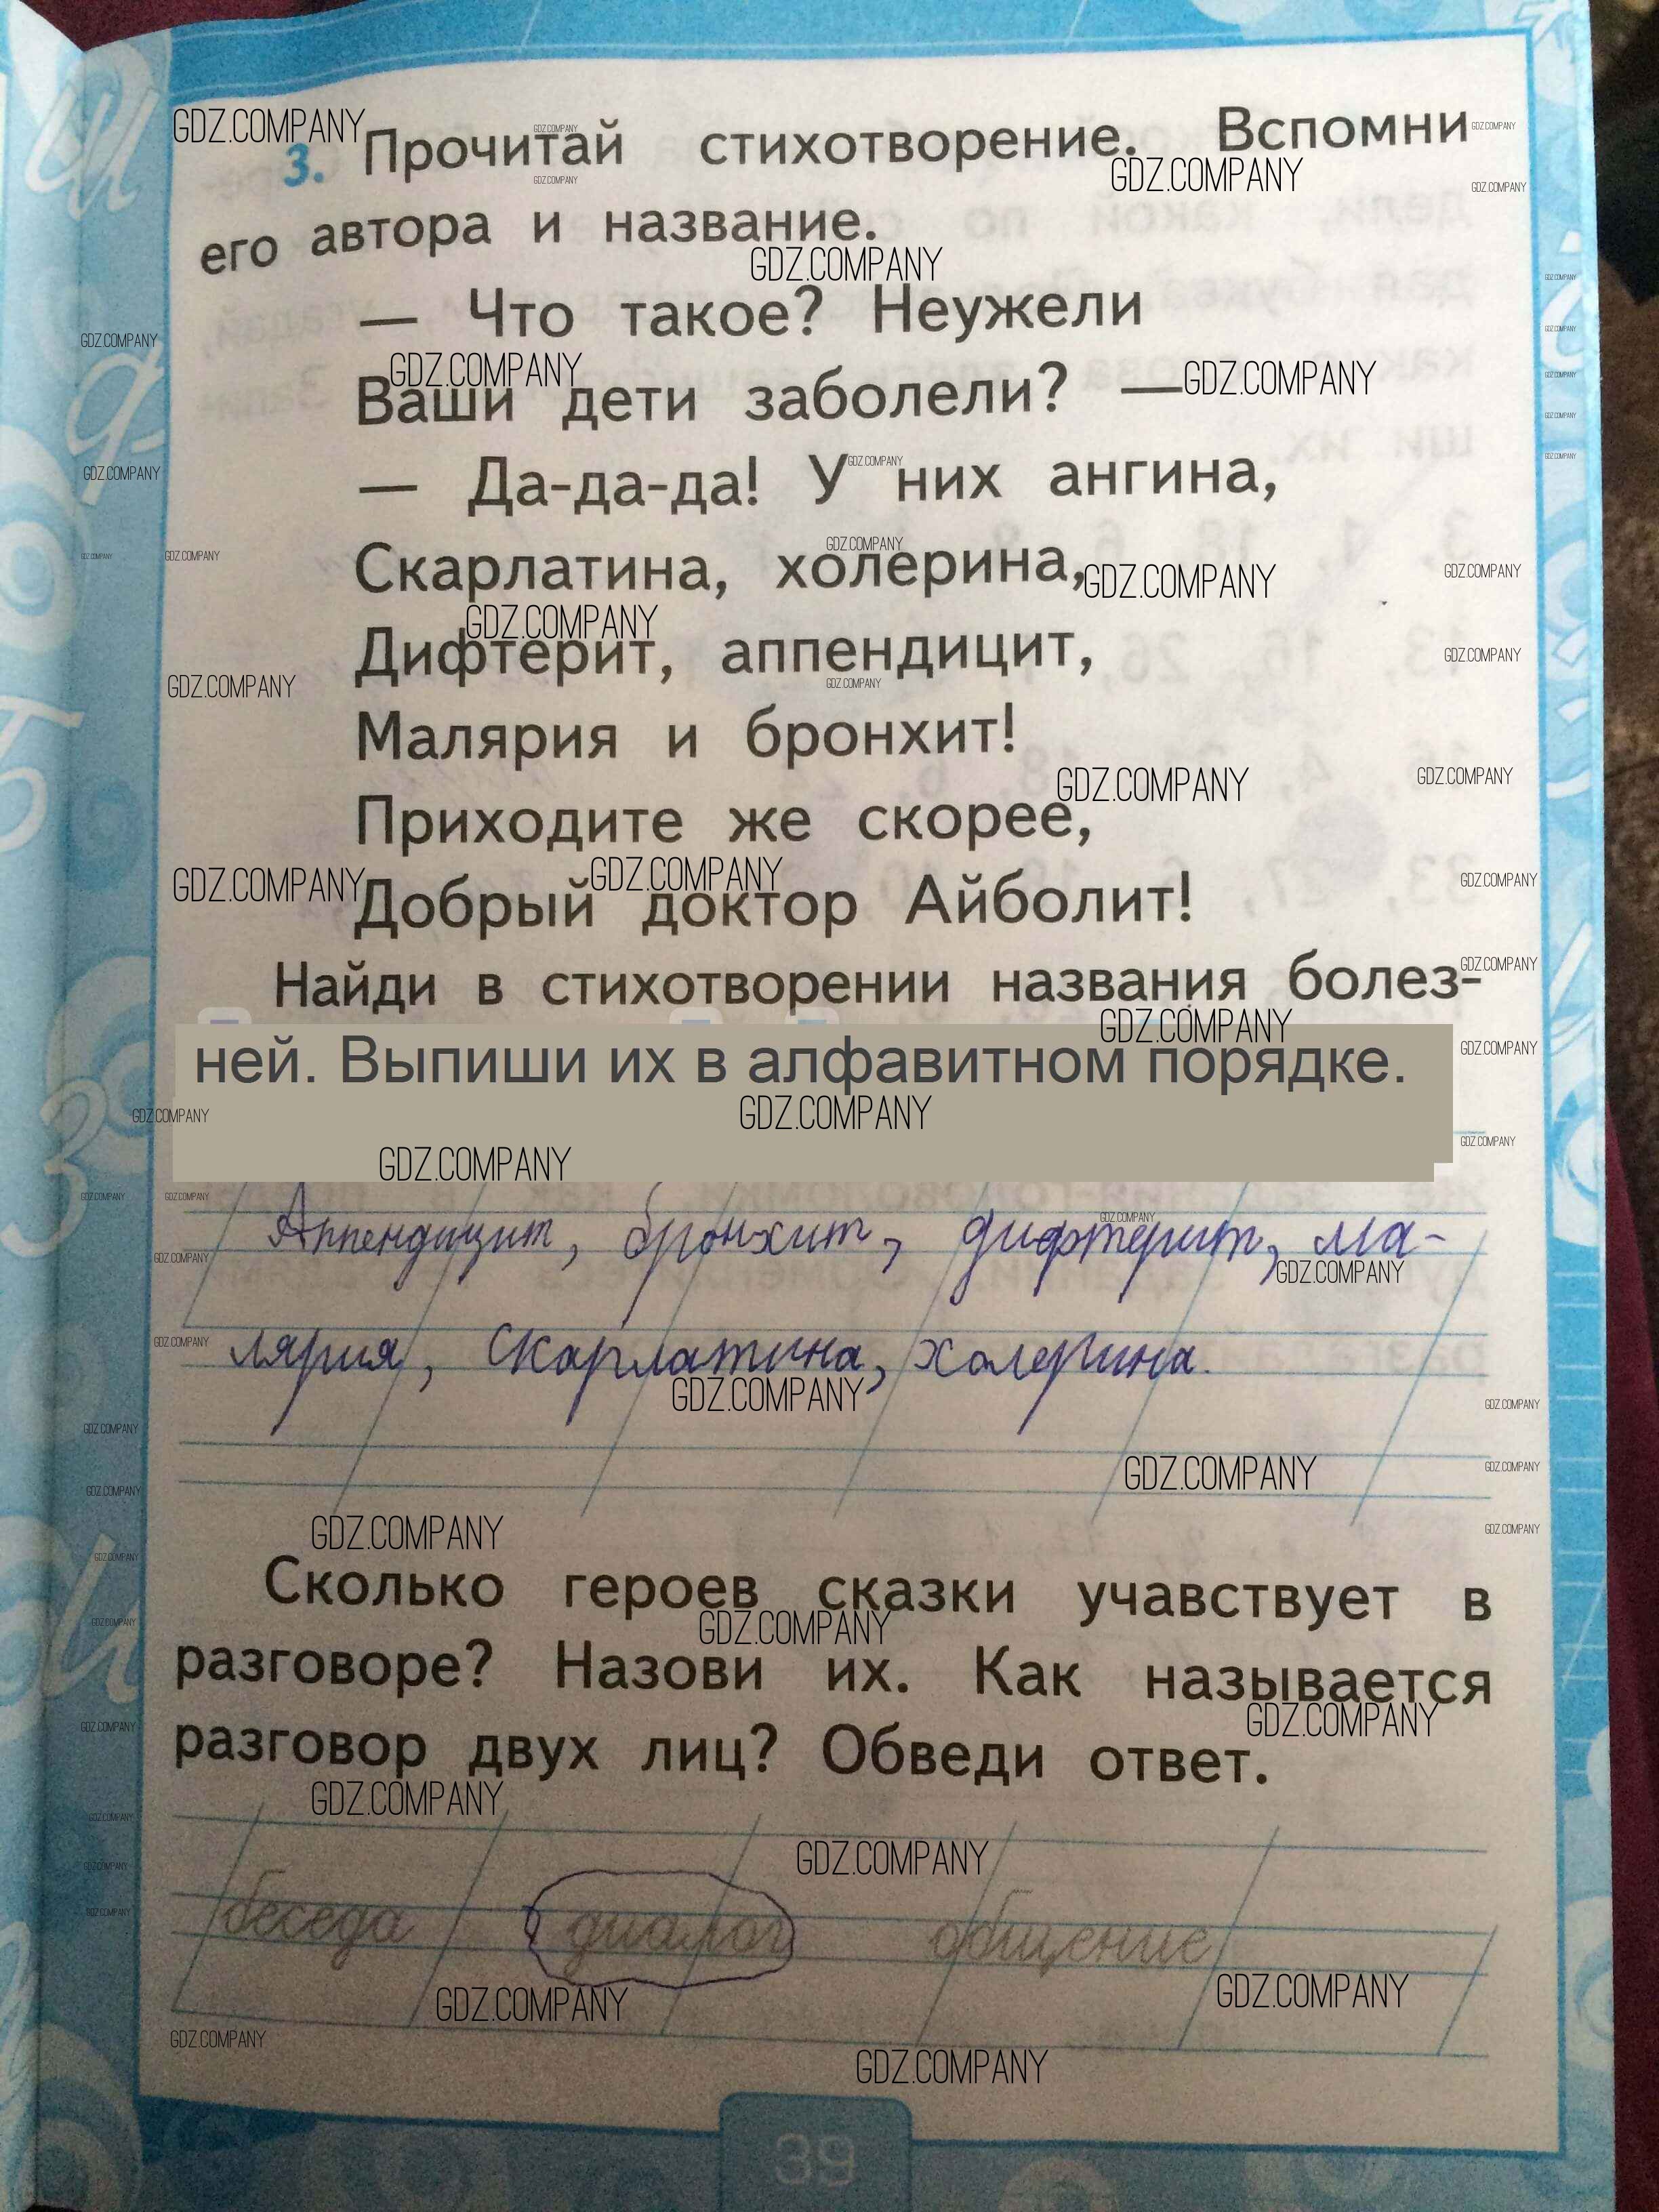 3. Прочитай стихотворение. Вспомни
его автора и название.
— Что такое? Неужели
Ваши дети заболели? —
— Да-да-да! У них ангина,
Скарлатина, холерина,
Дифтерит, аппендицит,
Малярия и бронхит!
Приходите же скорее,
Добрый доктор Айболит!
Найди в стихотворении названия болез-
ней. Выпиши их в алфавитном порядке.
Аппендицит, бронхит, дифтерит, ма-
лярия, скарлатина, холерина.
Сколько героев сказки учавствует в
разговоре? Назови их. Как называется
разговор двух лиц? Обведи ответ.
беседа диалог общение
39
GDZ.COMPANY